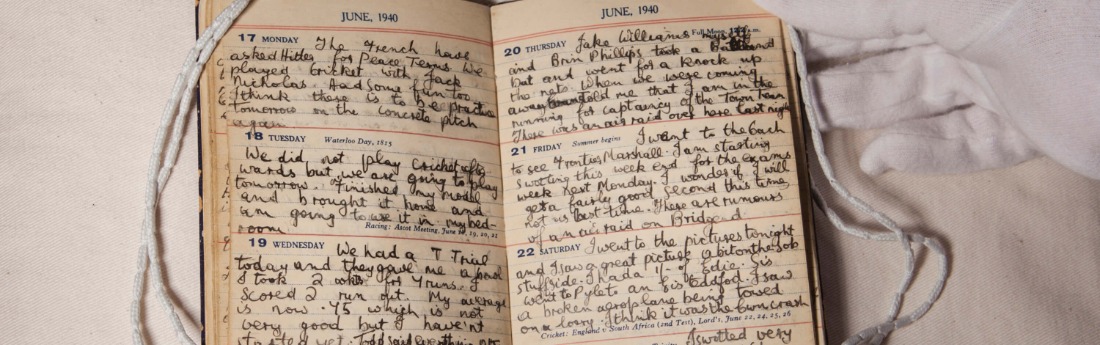 JUNE, 1940
17 MONDAY The French have
asked Hitler for Peace Terms. We
played cricket with Jack
Nicholas. Had some fun too.
I think there is to be practice
tomorrow on the concrete pitch
again
18 TUESDAY Waterloo Day, 1815
We did not play cricket after-
wards but we are going to play
tomorrow. Finished my model
and brought it home and
am going to use it in my bed-
room. Racing: Ascot Meeting, June 18, 19, 20, 21
19 WEDNESDAY We had a T Trial
today and they gave me a bowl
I took 2 wkts for 4 runs. I
scored 2 run out. My average
is now .45 which is not
very good but I haven't
started yet.
JUNE, 1940
20 THURSDAY Jake Williams Full Moon
and Brin Phillips took a Ball and
bat and went for a knock up
the nets. When we were coming
away told me that I am in the
running for captaincy of the Town team
There was an air raid over here last night
21 FRIDAY Summer begins I went to the bach
to see Fronties Marshall. I am starting
swotting this week end for the exams
week next Monday. I wonder if I will
get a fairly good second this time,
not us last time. There are rumours
of an air raid on Bridgend.
22 SATURDAY I went to the pictures tonight
and I saw a great picture
stuff side. I had a 1/- of Edie. Sis
went to Pyle to an Eisteddfod. I saw
a broken aeroplane being towed
on a lorry. I think it was the crash
Cricket: England v South Africa (2nd Test), Lord's, June 22, 24, 25, 26
I swotted very